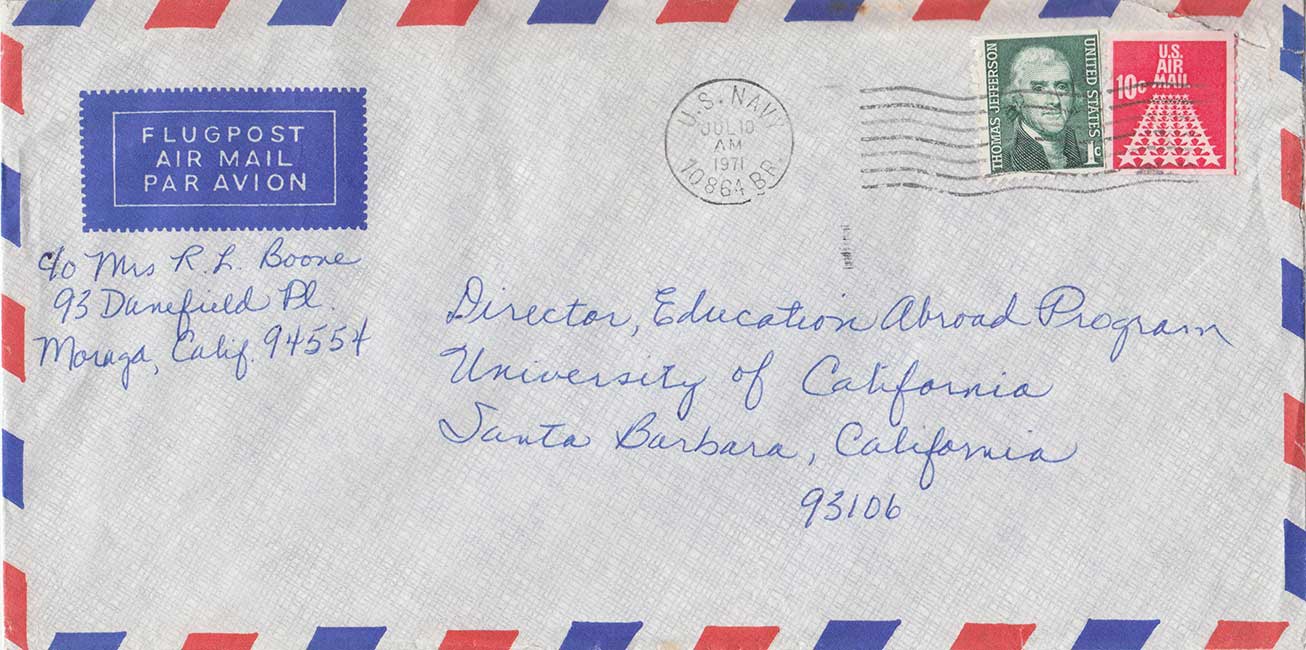 FLUGPOST
AIR MAIL
PAR AVION
c/o Mrs R. L. Boone
93 Danefield Pl.
Moraga, Calif. 94554
U.S. NAVY
JUL 10
AM
1971
10864 BR.
THOMAS JEFFERSON
UNITED STATES
1c
U.S.
AIR
MAIL
10c
Director, Education Abroad Program
University of California
Santa Barbara, California
93106